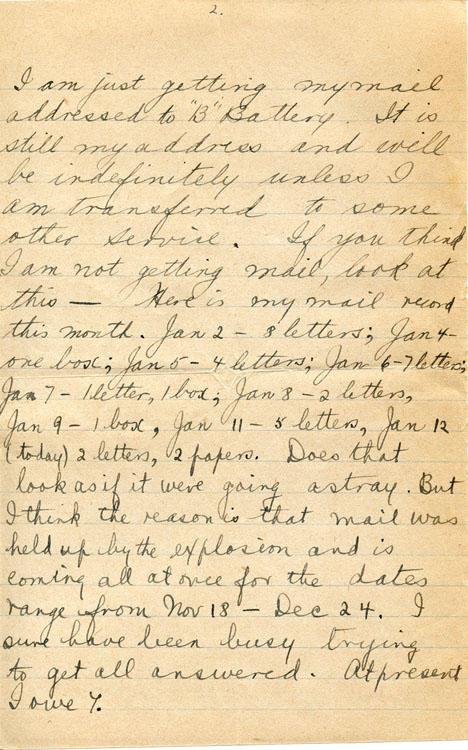 2.
I am just getting my mail
addressed to "B" Battery. It is
still my address and will
be indefinitely unless I
am transferred to some
other service. If you think
I am not getting mail, look at
this — Here is my mail record
this month. Jan 2 - 8 letters; Jan 4-
one box; Jan 5 - 4 letters; Jan 6-7 letters;
Jan 7 - 1 letter, 1 box; Jan 8 - 2 letters,
Jan 9 - 1 box, Jan 11 - 5 letters, Jan 12
(today) 2 letters, 2 papers. Does that
look as if it were going astray. But
I think the reason is that mail was
held up by the explosion and is
coming all at once for the dates
range from Nov 18 - Dec 24. I
sure have been busy trying
to get all answered. At present
I owe 7.